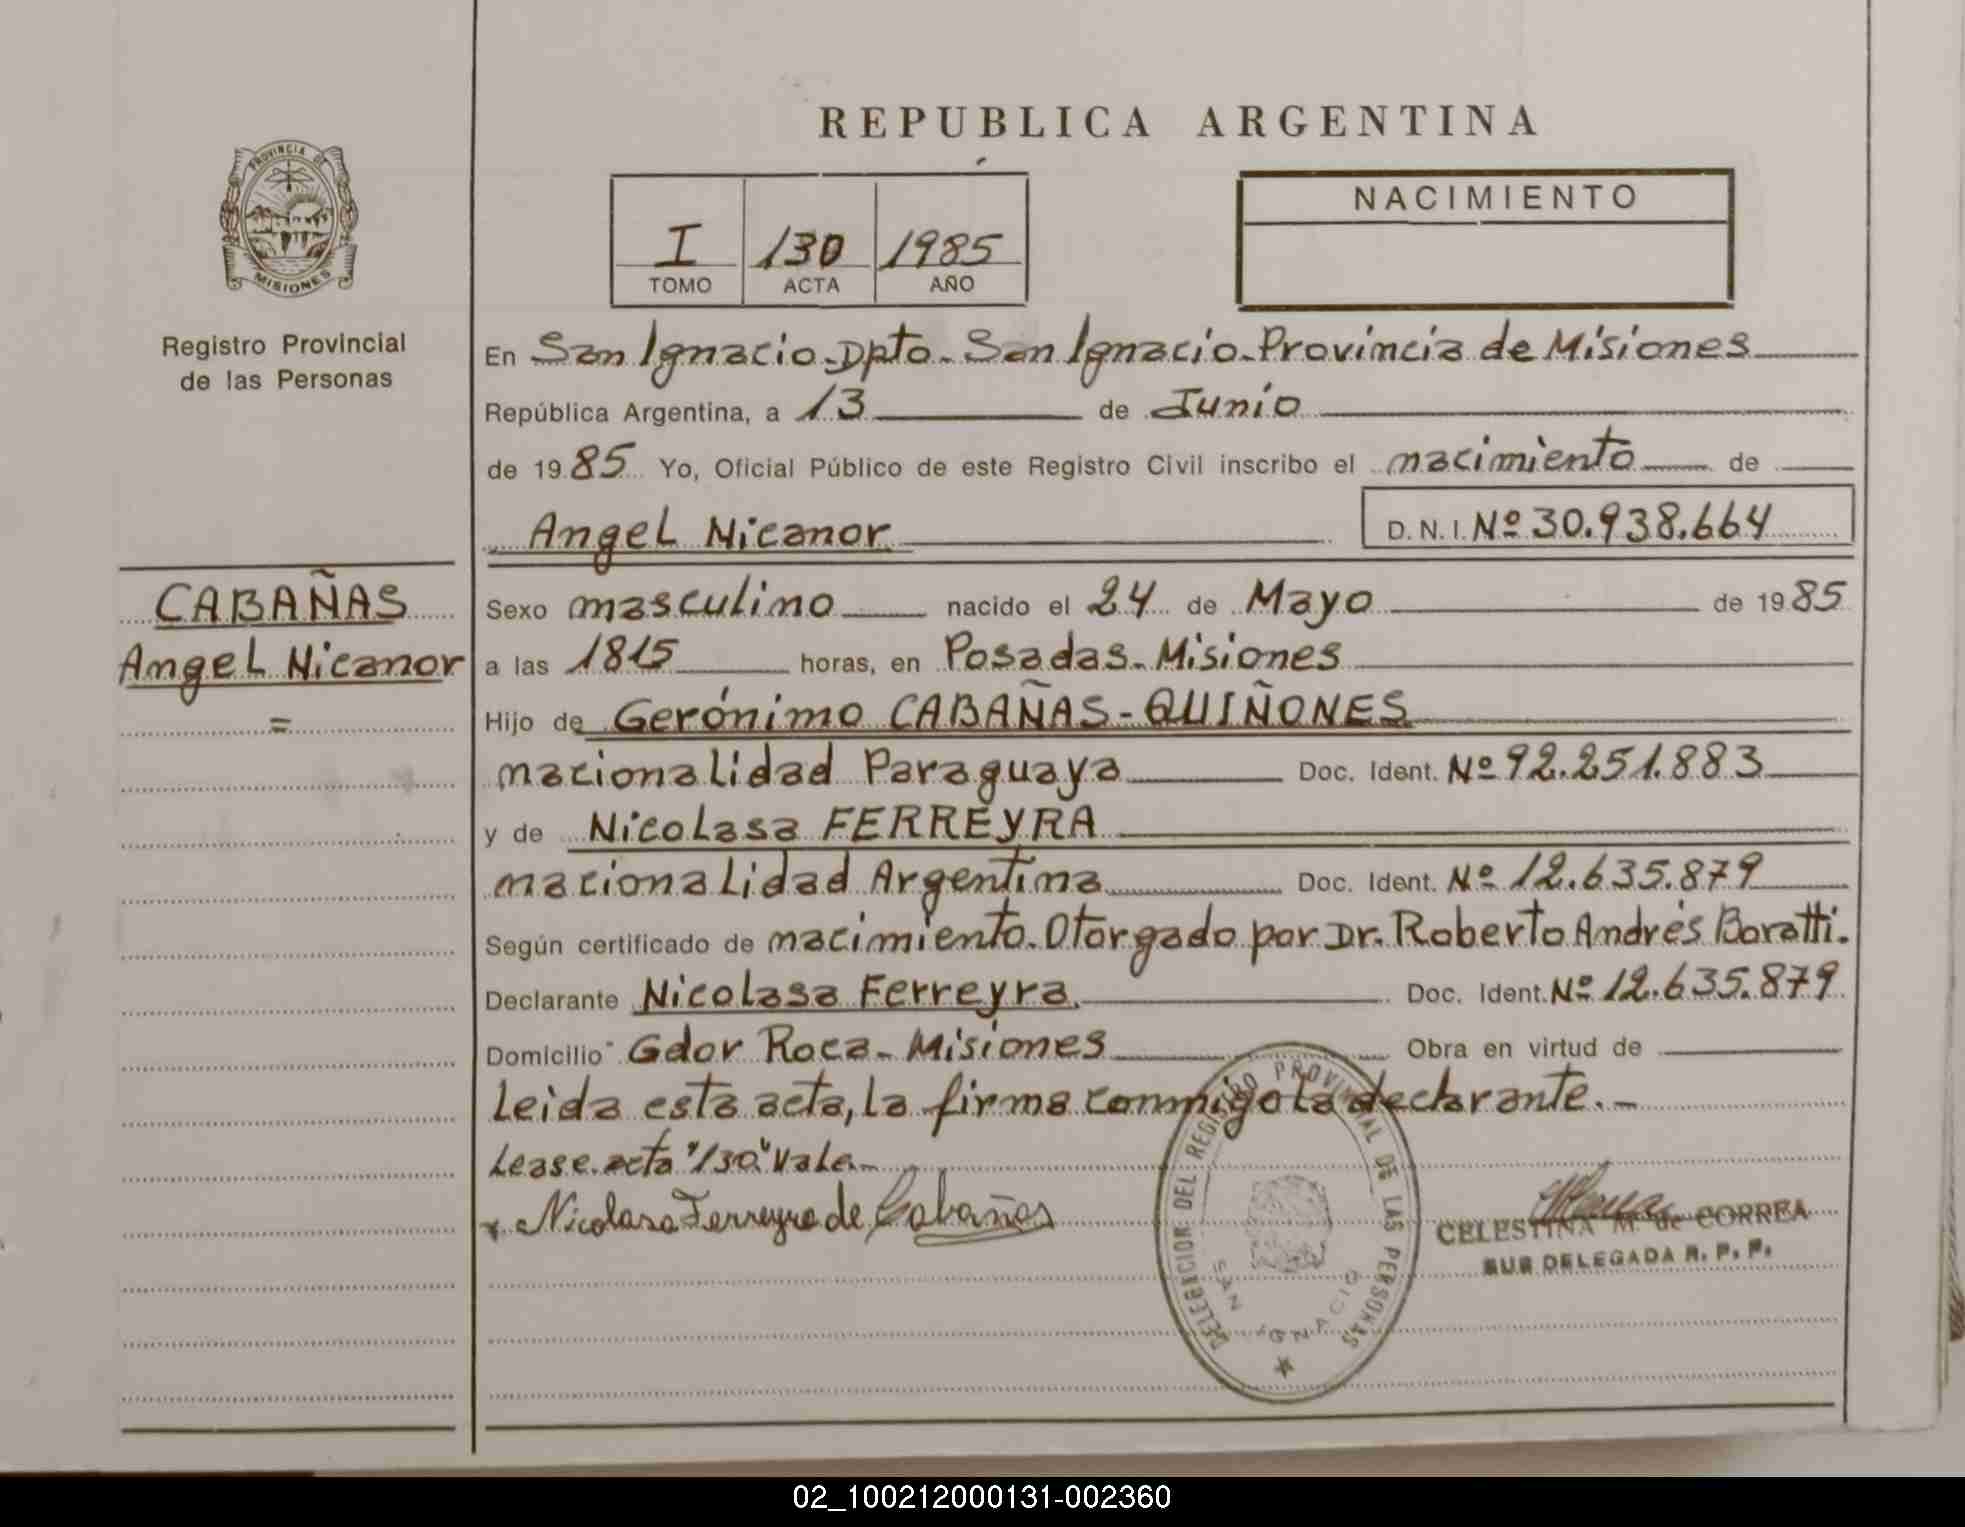 REPUBLICA ARGENTINA
PROVINCIA DE
MISIONES
Registro Provincial
de las Personas
I 130 1985
TOMO ACTA AÑO
NACIMIENTO
En San Ignacio-Dpto-San Ignacio-Provincia de Misiones
República Argentina, a 13 de Junio
de 1985 Yo, Oficial Público de este Registro Civil inscribo el nacimiento de
Angel Nicanor D.N.I. Nº 30.938.664
CABAÑAS
Angel Nicanor
=
Sexo masculino nacido el 24 de Mayo de 1985
a las 1815 horas, en Posadas-Misiones
Hijo de Gerónimo CABAÑAS-QUIÑONES
nacionalidad Paraguaya Doc. Ident. Nº 92.251.883
y de Nicolasa FERREYRA
nacionalidad Argentina Doc. Ident. Nº 12.635.879
Según certificado de nacimiento. Otorgado por Dr. Roberto Andrés Boratti.
Declarante Nicolasa Ferreyra. Doc. Ident. Nº 12.635.879
Domicilio Gdor Roca-Misiones Obra en virtud de
Leida esta acta, la firma conmigo la declarante.-
Lease acta "130" Vale-
x Nicolasa Ferreyra de Cabañas
DELEGACION DEL REGISTRO PROVINCIAL DE LAS PERSONAS
SAN IGNACIO
CELESTINA M. de CORREA
SUB DELEGADA R. P. P.
02_100212000131-002360